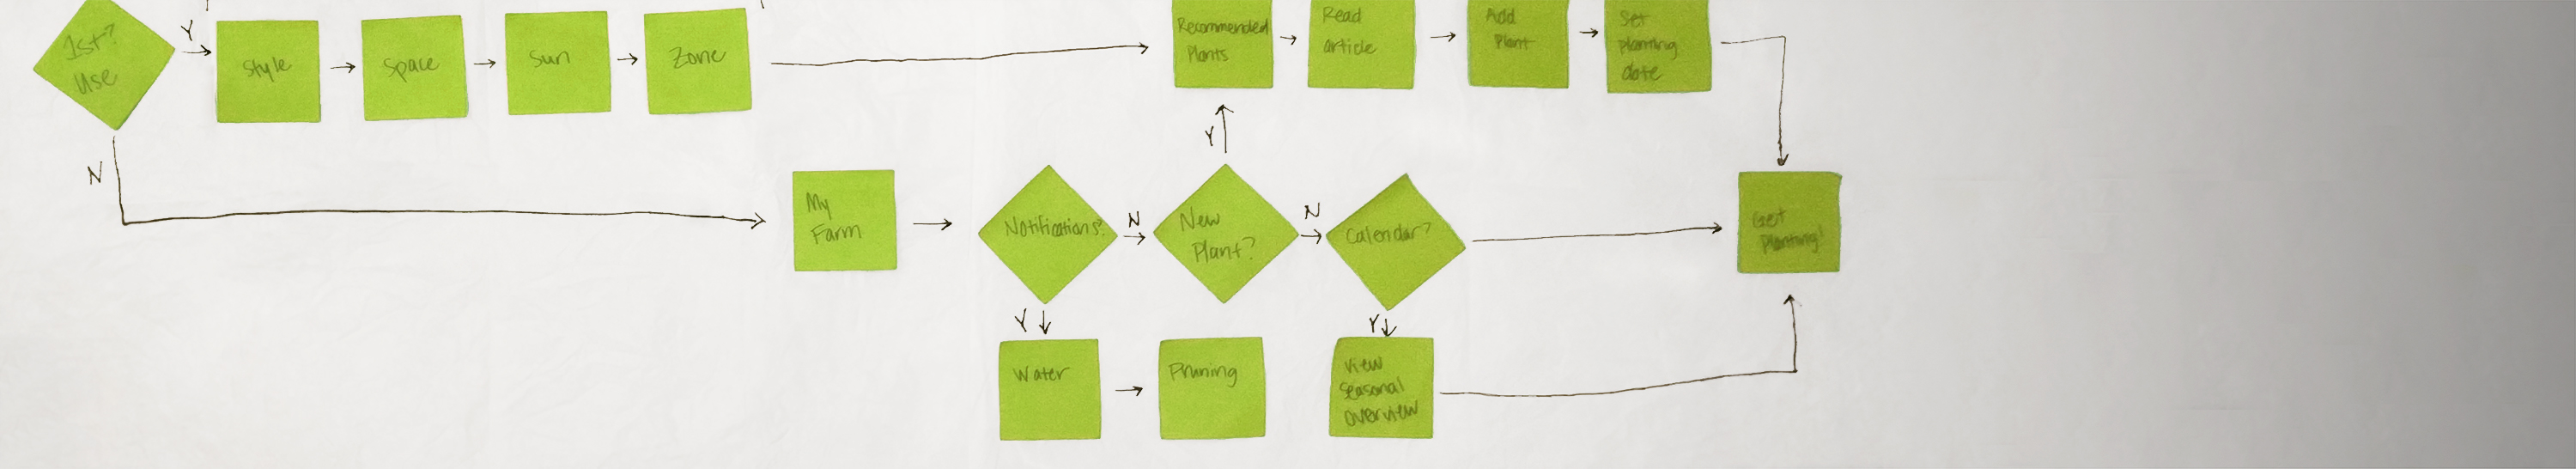 1st?
Use
Y
Style
Space
Sun
Zone
Recommended
Plants
Read
article
Add
Plant
Set
planting
date
N
My
Farm
Notifications?
N
Y
New
Plant?
N
Calendar?
Get
Planting!
Y
Water
Pruning
Y
View
seasonal
overview